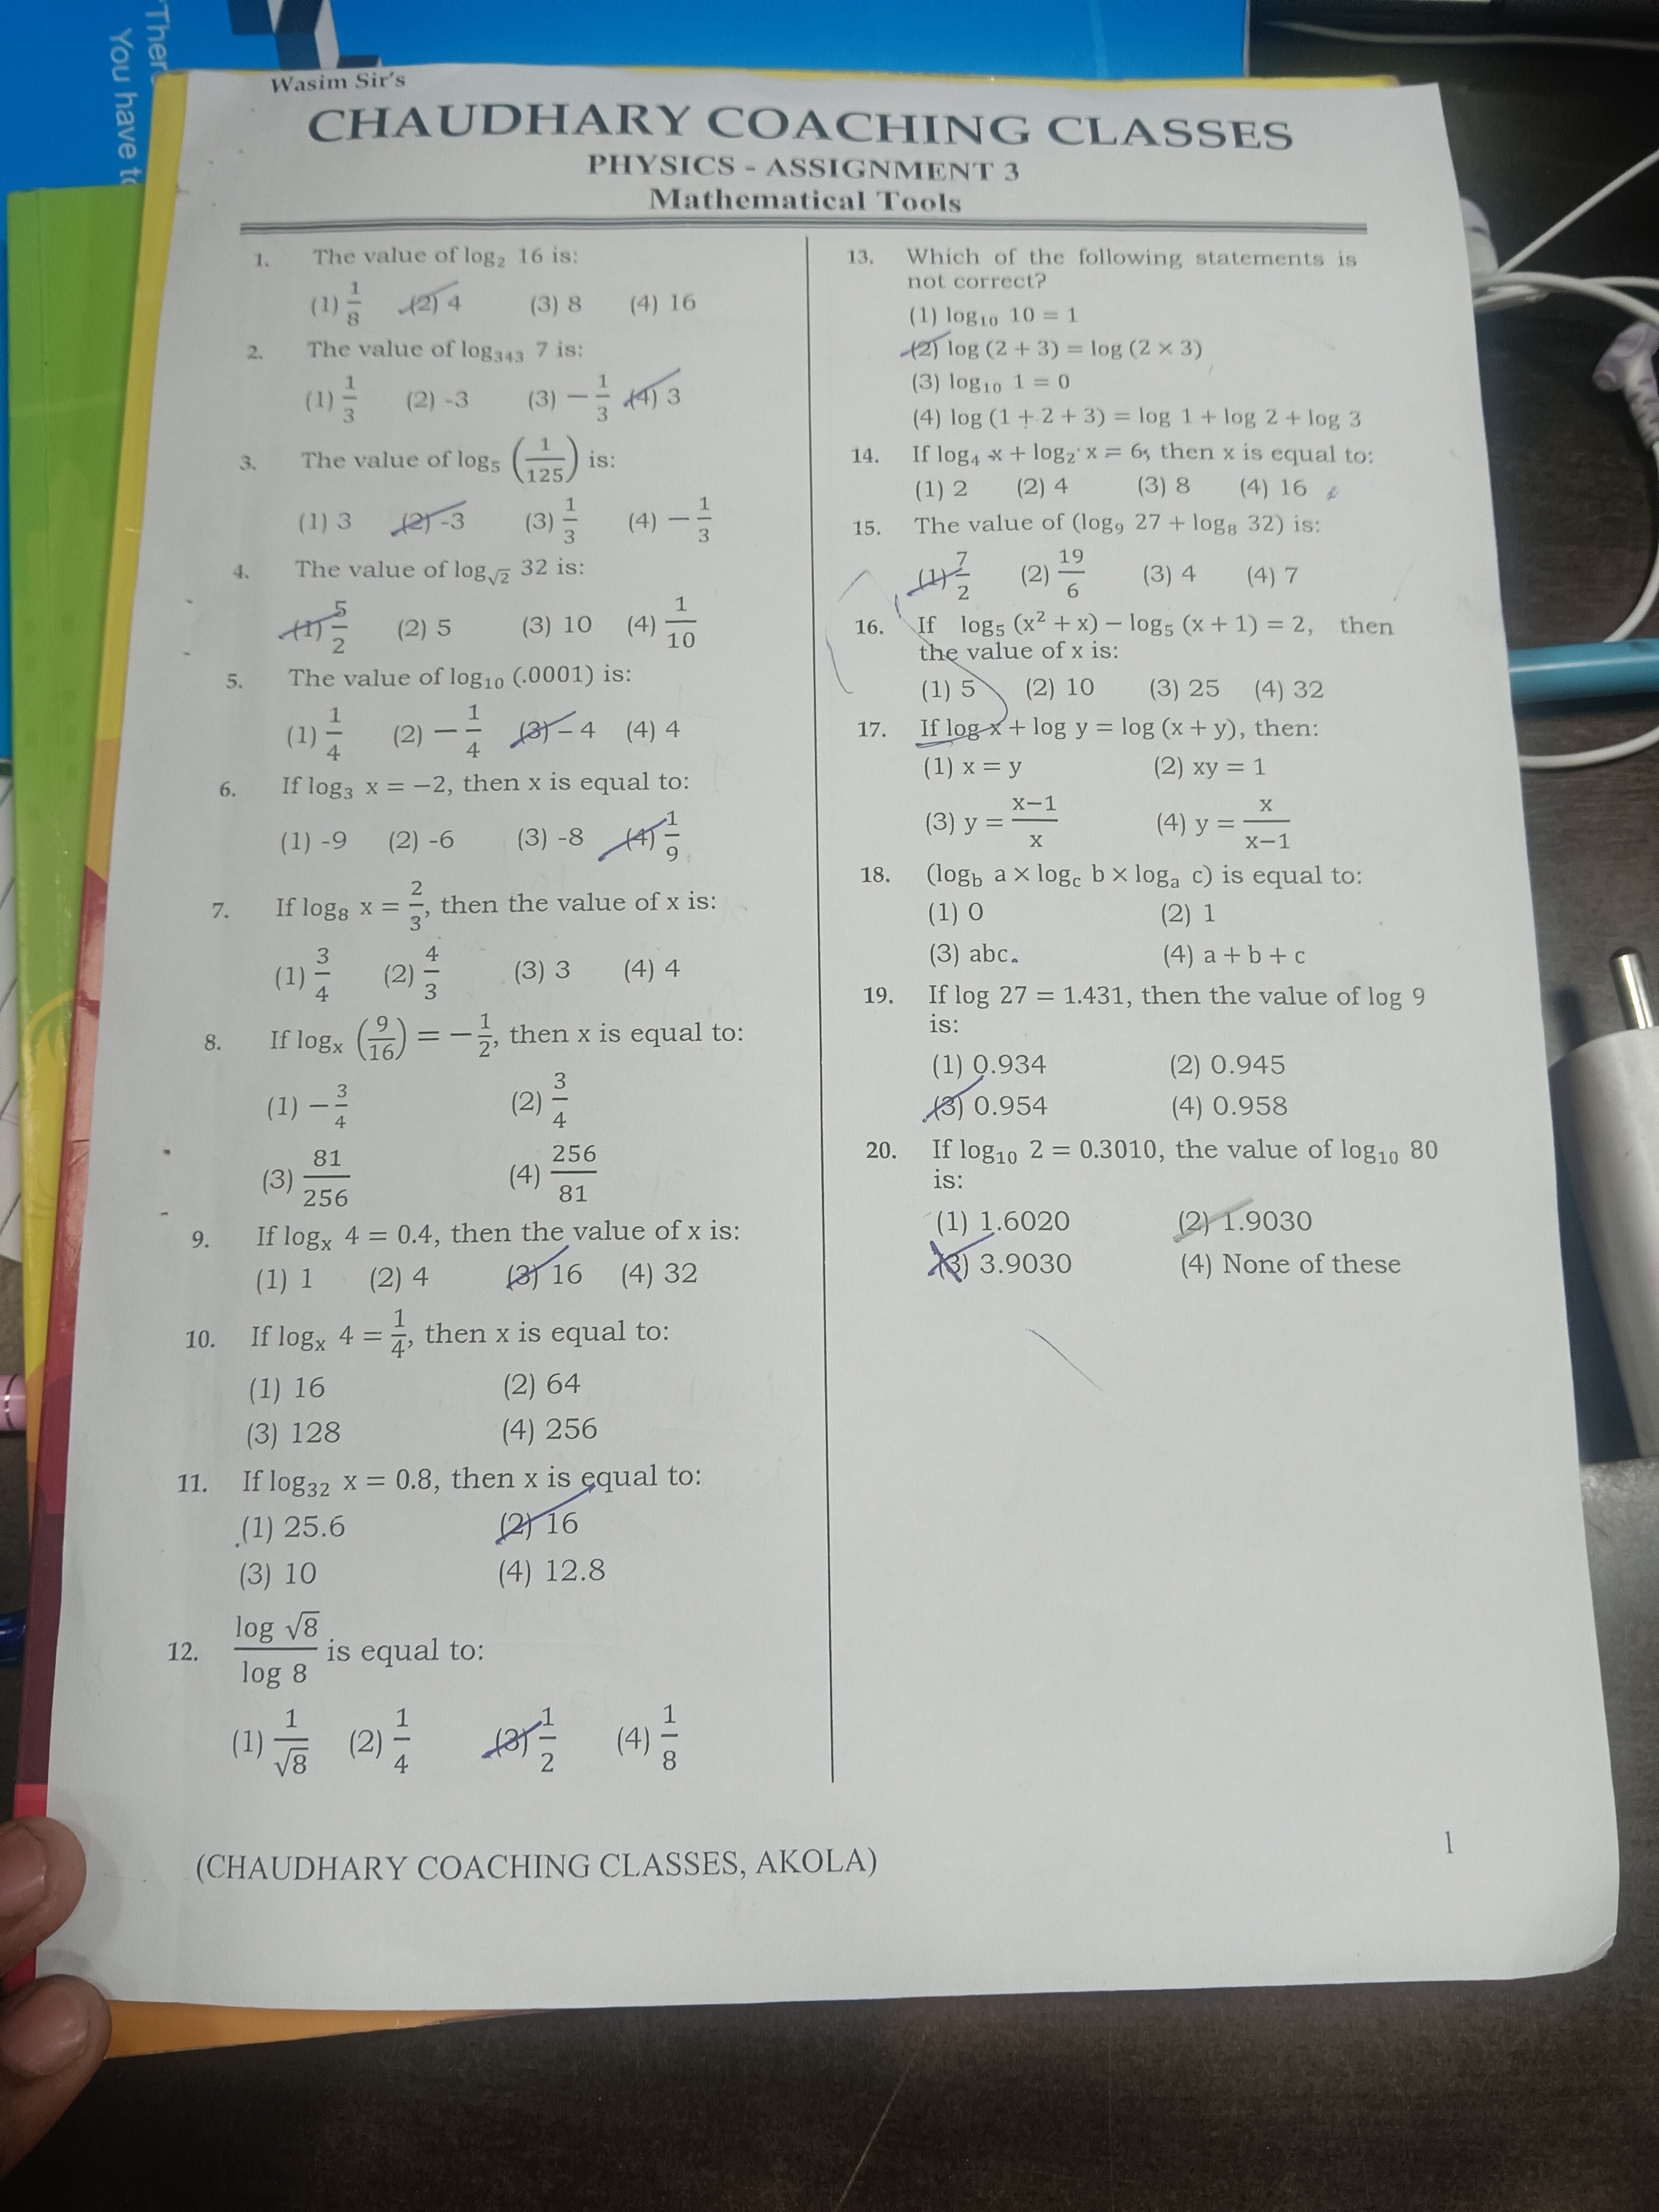 Ther
You have to
Wasim Sir's
CHAUDHARY COACHING CLASSES
PHYSICS - ASSIGNMENT 3
Mathematical Tools
1. The value of log₂ 16 is:
(1) 1/8 (2) 4 (3) 8 (4) 16
2. The value of log₃₄₃ 7 is:
(1) 1/3 (2) -3 (3) −1/3 (4) 3
3. The value of log₅ (1/125) is:
(1) 3 (2) -3 (3) 1/3 (4) −1/3
4. The value of log√2 32 is:
(1) 5/2 (2) 5 (3) 10 (4) 1/10
5. The value of log₁₀ (.0001) is:
(1) 1/4 (2) −1/4 (3) − 4 (4) 4
6. If log₃ x = −2, then x is equal to:
(1) -9 (2) -6 (3) -8 (4) 1/9
7. If log₈ x = 2/3, then the value of x is:
(1) 3/4 (2) 4/3 (3) 3 (4) 4
8. If logₓ (9/16) = −1/2, then x is equal to:
(1) −3/4 (2) 3/4
(3) 81/256 (4) 256/81
9. If logₓ 4 = 0.4, then the value of x is:
(1) 1 (2) 4 (3) 16 (4) 32
10. If logₓ 4 = 1/4, then x is equal to:
(1) 16 (2) 64
(3) 128 (4) 256
11. If log₃₂ x = 0.8, then x is equal to:
(1) 25.6 (2) 16
(3) 10 (4) 12.8
12. log √8 / log 8 is equal to:
(1) 1/√8 (2) 1/4 (3) 1/2 (4) 1/8
13. Which of the following statements is
not correct?
(1) log₁₀ 10 = 1
(2) log (2 + 3) = log (2 × 3)
(3) log₁₀ 1 = 0
(4) log (1 + 2 + 3) = log 1 + log 2 + log 3
14. If log₄ x + log₂ x = 6, then x is equal to:
(1) 2 (2) 4 (3) 8 (4) 16
15. The value of (log₉ 27 + log₈ 32) is:
(1) 7/2 (2) 19/6 (3) 4 (4) 7
16. If log₅ (x² + x) − log₅ (x + 1) = 2, then
the value of x is:
(1) 5 (2) 10 (3) 25 (4) 32
17. If log x + log y = log (x + y), then:
(1) x = y (2) xy = 1
(3) y = x−1/x (4) y = x/x−1
18. (log_b a × log_c b × log_a c) is equal to:
(1) 0 (2) 1
(3) abc. (4) a + b + c
19. If log 27 = 1.431, then the value of log 9
is:
(1) 0.934 (2) 0.945
(3) 0.954 (4) 0.958
20. If log₁₀ 2 = 0.3010, the value of log₁₀ 80
is:
(1) 1.6020 (2) 1.9030
(3) 3.9030 (4) None of these
(CHAUDHARY COACHING CLASSES, AKOLA)
1